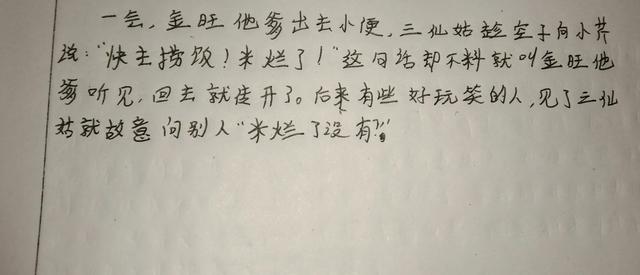 一会，金旺他爹出去小便，三仙姑趁空子向小芹
说："快去捞饭！米烂了！"这句话却不料就叫金旺他
爹听见，回去就传开了。后来有些好玩笑的人，见了三仙
姑就故意问别人"米烂了没有？"